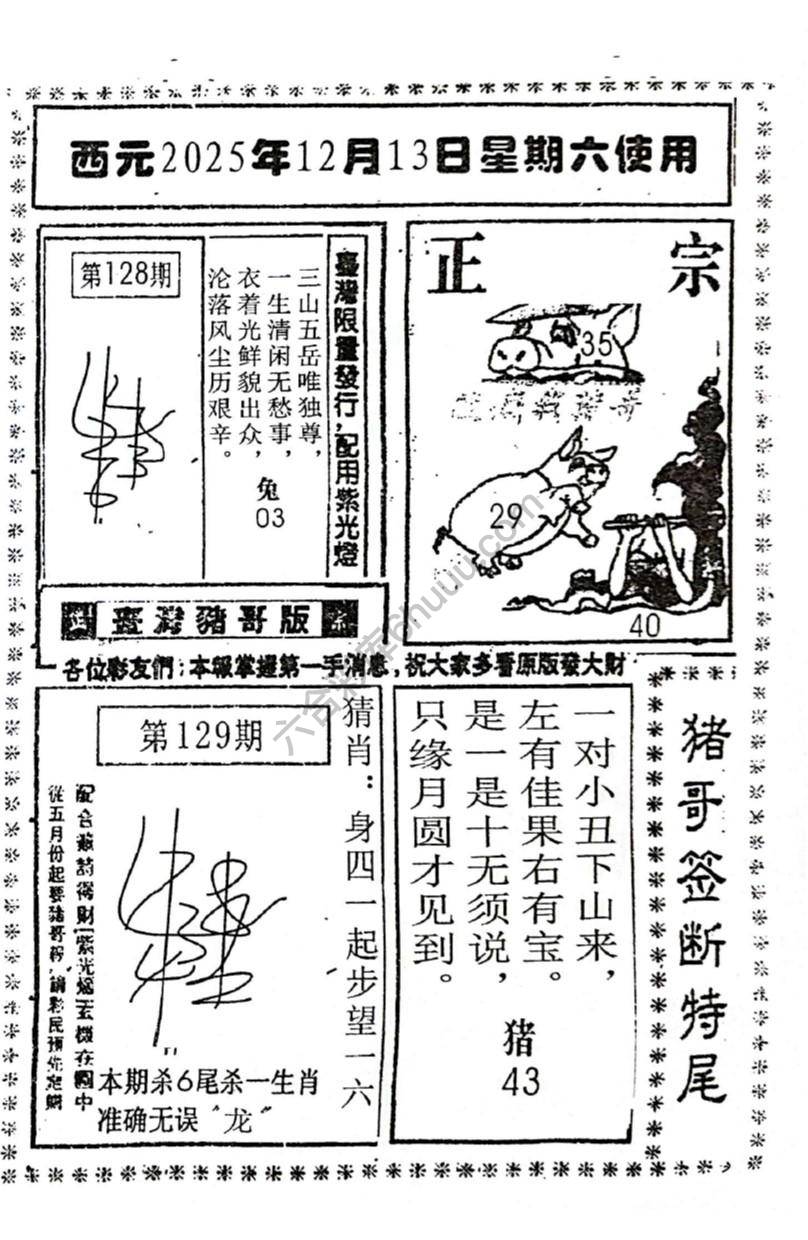 西元2025年12月13日星期六使用
第128期
三山五岳唯独尊，
一生清闲无愁事，
衣着光鲜貌出众，
沦落风尘历艰辛。
兔
03
臺灣限量發行，配用紫光燈
正宗
35
29
40
臺灣豬哥版
各位彩友們：本報掌握第一手消息，祝大家多看原版發大財
第129期
猜肖：身四一起步望一六
從五月份起要豬哥報，請彩民預先定購
本期杀6尾杀一生肖
准确无误“龙”
一对小丑下山来，
左有佳果右有宝。
是一是十无须说，
只缘月圆才见到。
猪
43
猪哥签断特尾
六合彩库6huuu.com